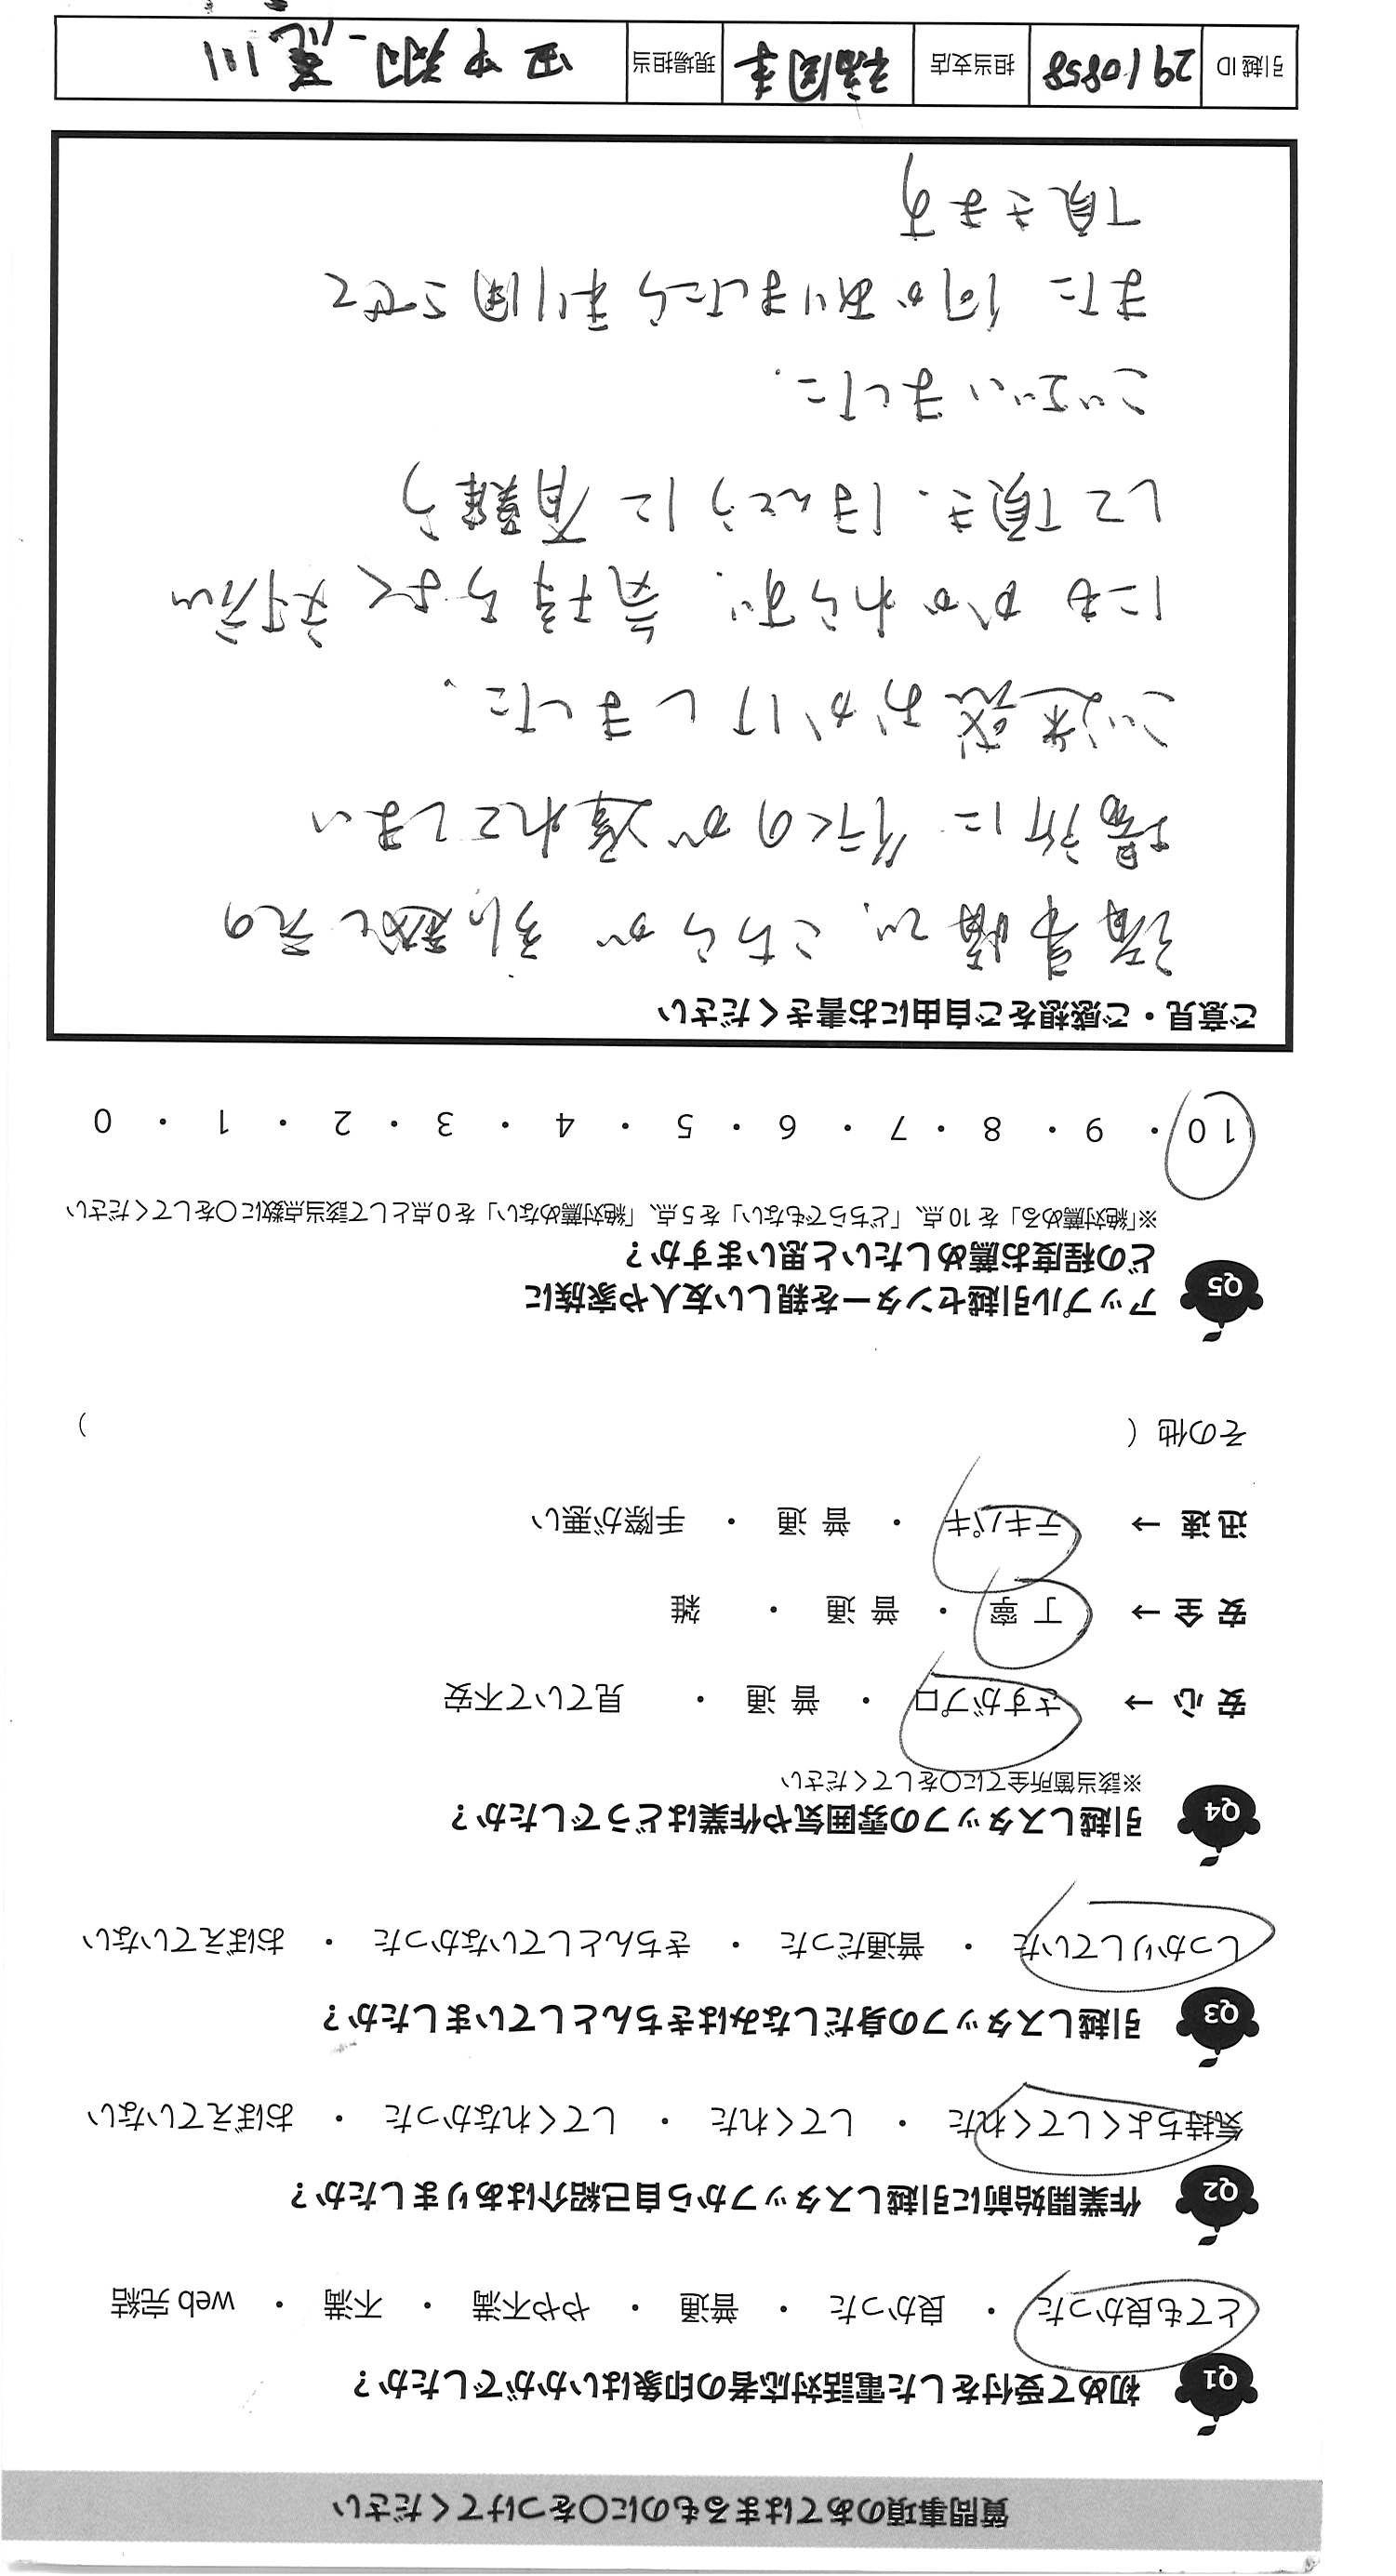 質問事項のあてはまるものに〇をつけてください
Q1 初めて受付をした電話対応者の印象はいかがでしたか？
とても良かった ・ 良かった ・ 普通 ・ やや不満 ・ 不満 ・ web 完結
Q2 作業開始前に引越しスタッフから自己紹介はありましたか？
気持ちよくしてくれた ・ してくれた ・ してくれなかった ・ おぼえていない
Q3 引越しスタッフの身だしなみはきちんとしていましたか？
しっかりしていた ・ 普通だった ・ きちんとしていなかった ・ おぼえていない
Q4 引越しスタッフの雰囲気や作業はどうでしたか？
※該当箇所全てに〇をしてください
安 心 → さすがプロ ・ 普 通 ・ 見ていて不安
安 全 → 丁 寧 ・ 普 通 ・ 雑
迅 速 → テキパキ ・ 普 通 ・ 手際が悪い
その他（ ）
Q5 アップル引越センターを親しい友人や家族に
どの程度お薦めしたいと思いますか？
※「絶対薦める」を 10 点、「どちらでもない」を 5 点、「絶対薦めない」を 0 点として該当点数に〇をしてください
10 ・ 9 ・ 8 ・ 7 ・ 6 ・ 5 ・ 4 ・ 3 ・ 2 ・ 1 ・ 0
ご意見・ご感想をご自由にお書きください
諸事情で、こちらが 引越し元の
場所に 行くのが遅れてしまい
ご迷惑おかけしました、
にもかかわらず、気持ちよく対応
して頂き、ほんとうに有難う
ございました.
また 何かありましたら利用させて
頂きます
引越 ID 2910858 担当支店 福岡 現場担当 田中